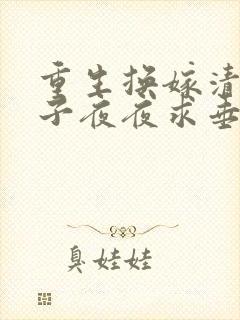 重生换嫁清
子夜夜求垂
臭娃娃